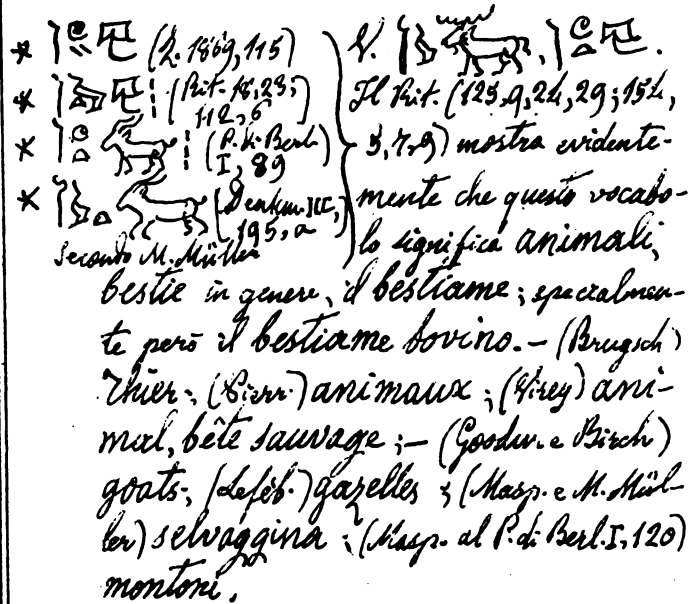 * (Z. 1869, 115)
* (Rit. 18, 23; 112, 6
* (P. di Berl. I, 89
* (Denkm. III, 195, a
Secondo M. Müller
V.
Il Rit. (125, 9, 24, 29; 154,
5, 7, 9) mostra evidente-
mente che questo vocabo-
lo significa animali,
bestie in genere, il bestiame; specialmen-
te però il bestiame bovino. — (Brugsch)
Thier; (Pierr.) animaux; (Virey) ani-
mal, bête sauvage; — (Goodw. e Birch)
goats; (Lefèb.) gazelles; (Masp. e M. Mül-
ler) selvaggina; (Masp. al P. di Berl. I, 120)
montoni.